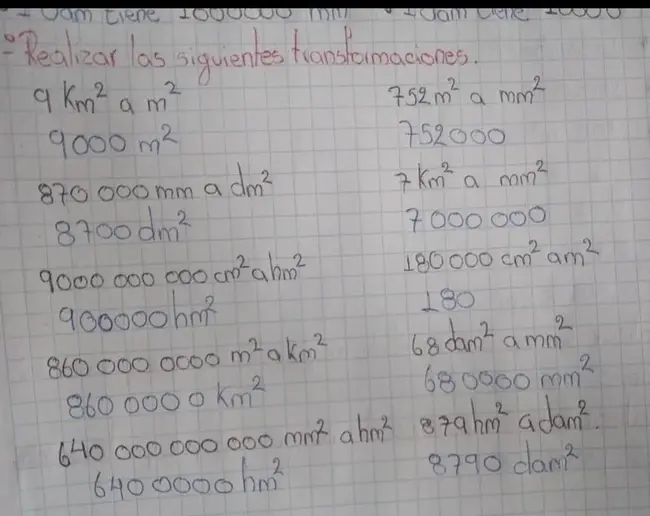 1 Dam tiene 1000000 mm
Realizar las siguientes transformaciones.
9 Km² a m²
9000 m²
870 000 mm a dm²
8700 dm²
9000 000 000 cm² a hm²
900000 hm²
860 000 0000 m² a Km²
860 0000 Km²
640 000 000 000 mm² a hm²
640 0000 hm²
752 m² a mm²
752000
7 Km² a mm²
7 000 000
180 000 cm² a m²
180
68 dam² a mm²
680000 mm²
879 hm² a dam².
8790 dam²